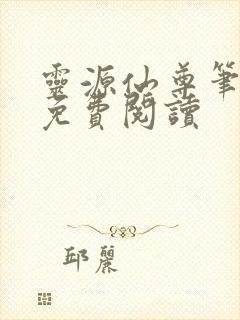 靈源仙尊筆
免費閱讀
邱麗